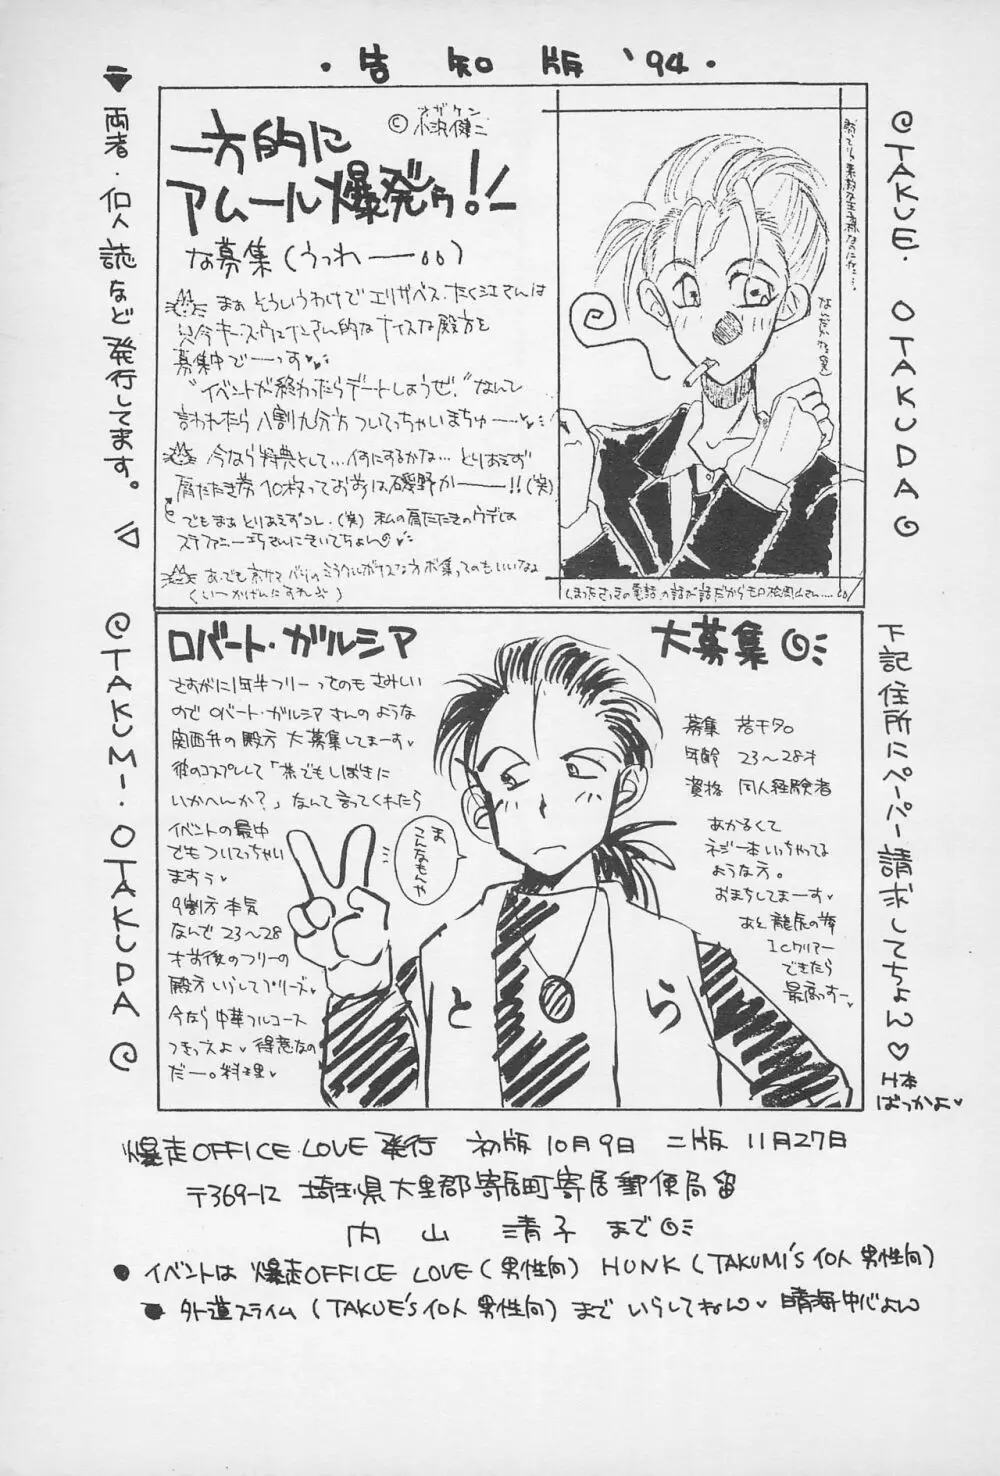 ・告知版 '94・
▼両者・個人誌など発行してます。◁
@TAKUMI・OTAKUDA@
@TAKUE・OTAKUDA@
下記住所にペーパー請求してちょん♡
H本
ばっかよ♥
オザケン
©小沢健二
一方的に
アムール爆発ゥ!!
な募集(うっわーー。。)
まぁ そういうわけで エリザベス・たく江さんは
只今 キース・ なナイスな殿方を
募集中でーーっす♥♥
"イベントが終わったらデートしようぜ。"なんて
言われたら八割九分方ついてっちゃいまちゅーー♥♥
今なら特典として…何にするかな…とりあえず
肩たたき券10枚ってお前は磯野かーーー!!(笑)
でもまぁとりあえずコレ・(笑) 私の肩たたきのウデは
ステファニー さんにきいてちょん♥
あ、でも なカンボ集ってのもいいなぁ
(い〜かげんにすれぶ)
ならんだ(笑)
(しまったさっきの電話の話が話だから さん……
ロバート・ガルシア
大募集
さすがに1年半フリーってのもさみしい
のでロバート・ガルシアさんのような
関西弁の殿方 大募集してまーす♥
彼のコスプレして「茶でもしばきに
いかへんか?」なんて言ってくれたら
イベントの最中
でもついてっちゃい
ますぅ♥
9割方 本気
なんで 23〜28
才前後のフリーの
殿方 いらしてプリーズ♥
今なら中華フルコース
つきっスよ♥得意なの
だー。料理♥
ま
こんなもんや
とら
募集 若干名
年齢 23〜28才
資格 同人経験者
あかるくて
ネジ一本いっちゃってる
ような方。
おまちしてまーす♥
あと龍虎の拳
1Cクリアー
できたら
最高っすー♥
爆走OFFICE LOVE 発行 初版10月9日 二版 11月27日
〒369-12 埼玉県大里郡寄居町寄居郵便局留
内山 清子 まで
●イベントは 爆走OFFICE LOVE(男性向) HUNK(TAKUMI'S個人 男性向)
●外道スライム(TAKUE'S個人 男性向)まで いらしてねん♥ 晴海中心よん